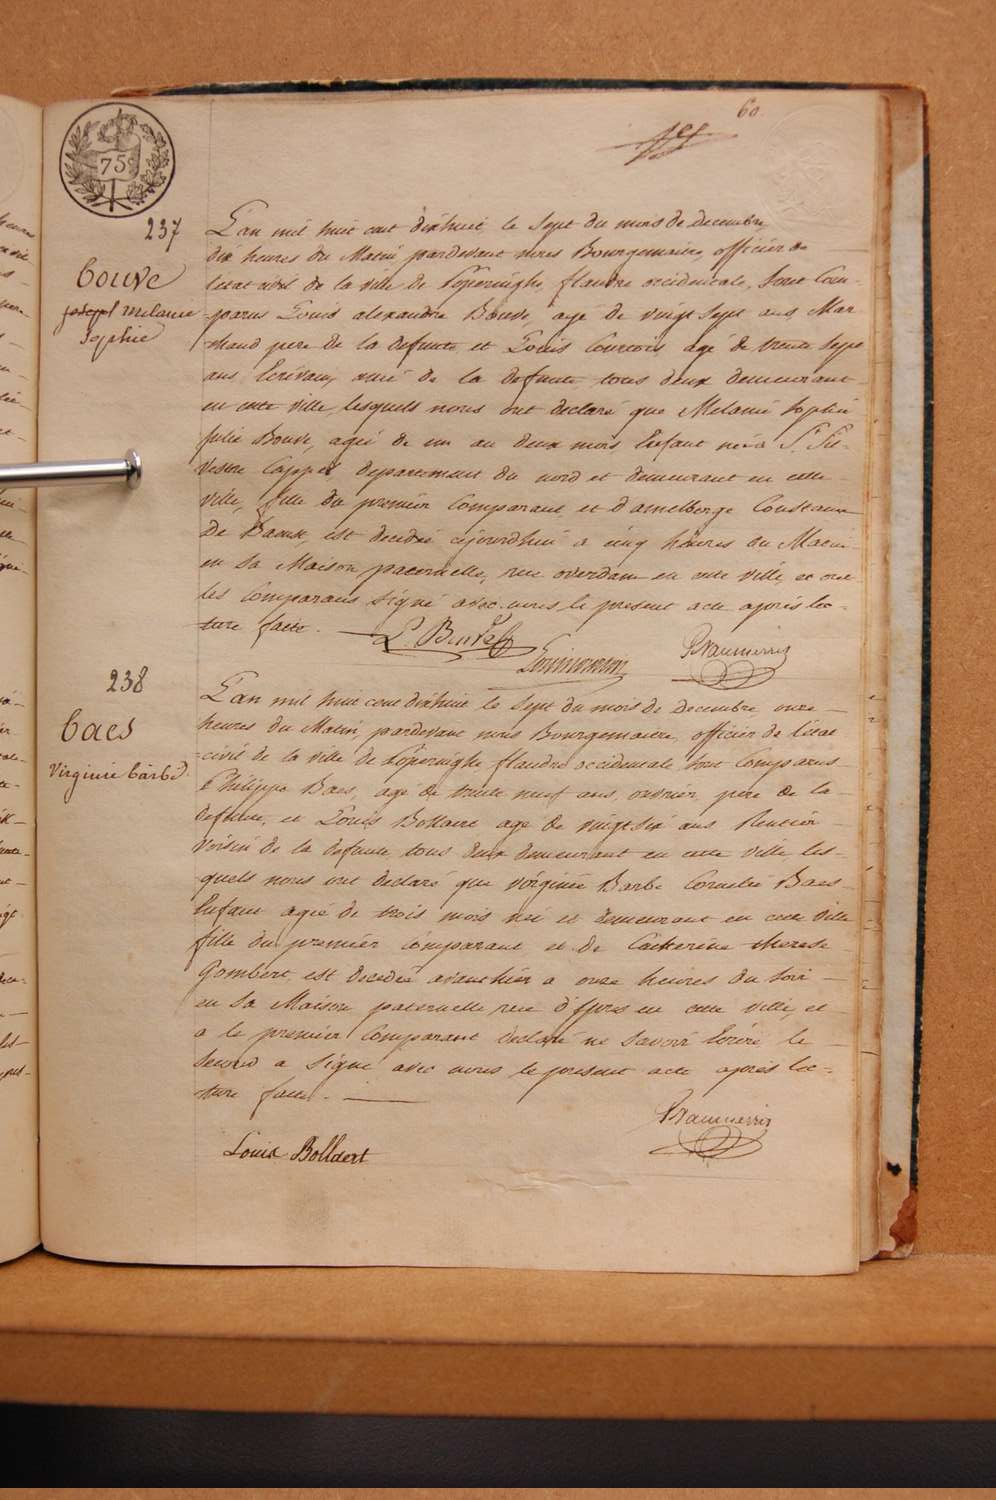 60.
75c
237
Bouve
Melanie
Sophie
L'an mil huit cent dixhuit, le sept du mois de decembre
dix heures du Matin pardevant nous Bourgemaitre, officier de
l'etat civil de la ville de Poperinghe, flandre occidentale, sont Com-
-parus Louis alexandre Bouve, agé de vingt sept ans Mar-
chand pere de la defunte et Louis Courtois agé de trente sept
ans Ecrivain, ami de la defunte, tous deux demeurant
en cette ville, lesquels nous ont declaré que Melanie Sophie
Julie Bouve, agée de un an deux mois Enfant née à St. Sil-
vestre Cappel departement du nord et demeurant en cette
ville, fille du premier Comparant et d'amelberge Constance
De Baene, est decedée cejourdhui a cinq heures du Matin
en sa Maison paternelle, rue overdam en cette ville, et ont
les Comparans signé avec nous le present acte après lec-
-ture faite.
L. Bouve
238
Baes
Virginie Barbe
L'an mil huit cent dixhuit le sept du mois de Decembre onze
heures du Matin, pardevant nous Bourgemaitre, officier de l'etat
civil de la ville de Poperinghe, flandre occidentale sont Comparus
Philippe Baes, agé de trente neuf ans, ouvrier, pere de la
defunte, et Louis Bollaert agé de vingt six ans Rentier
voisin de la defunte tous deux demeurant en cette ville les-
quels nous ont declaré que virginie Barbe Cornelie Baes
Enfant agée de trois mois née et demeurant en cette ville
fille du premier comparant et de Catherine therese
Gombert, est decedée avanthier a onze heures du soir
en sa Maison paternelle rue d'ypres en cette ville, et
a le premier Comparant declaré ne savoir Ecrire le
second a signé avec nous le present acte après lec-
-ture faite.
Louis Bollaert